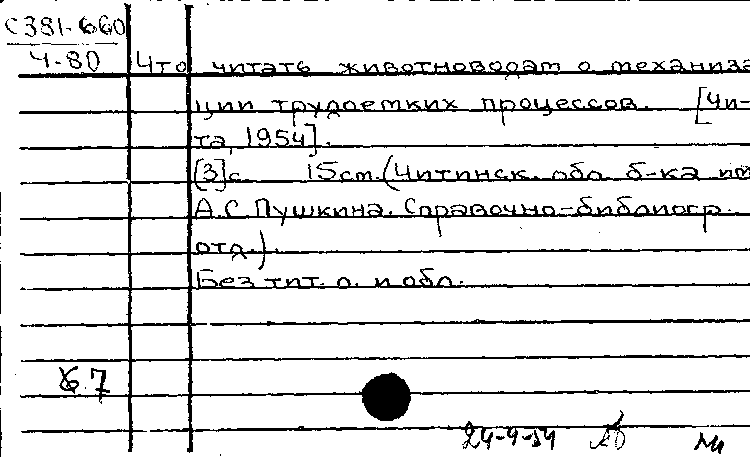 С381-660
Ч-80
Что читать животноводам о механиза
ции трудоемких процессов. [Чи-
та, 1954].
[3]с. 15см. (Читинск. обл. б-ка им
А.С. Пушкина. Справочно-библиогр.
отд.).
Без тит. л. и обл.
Х67
24-9-54